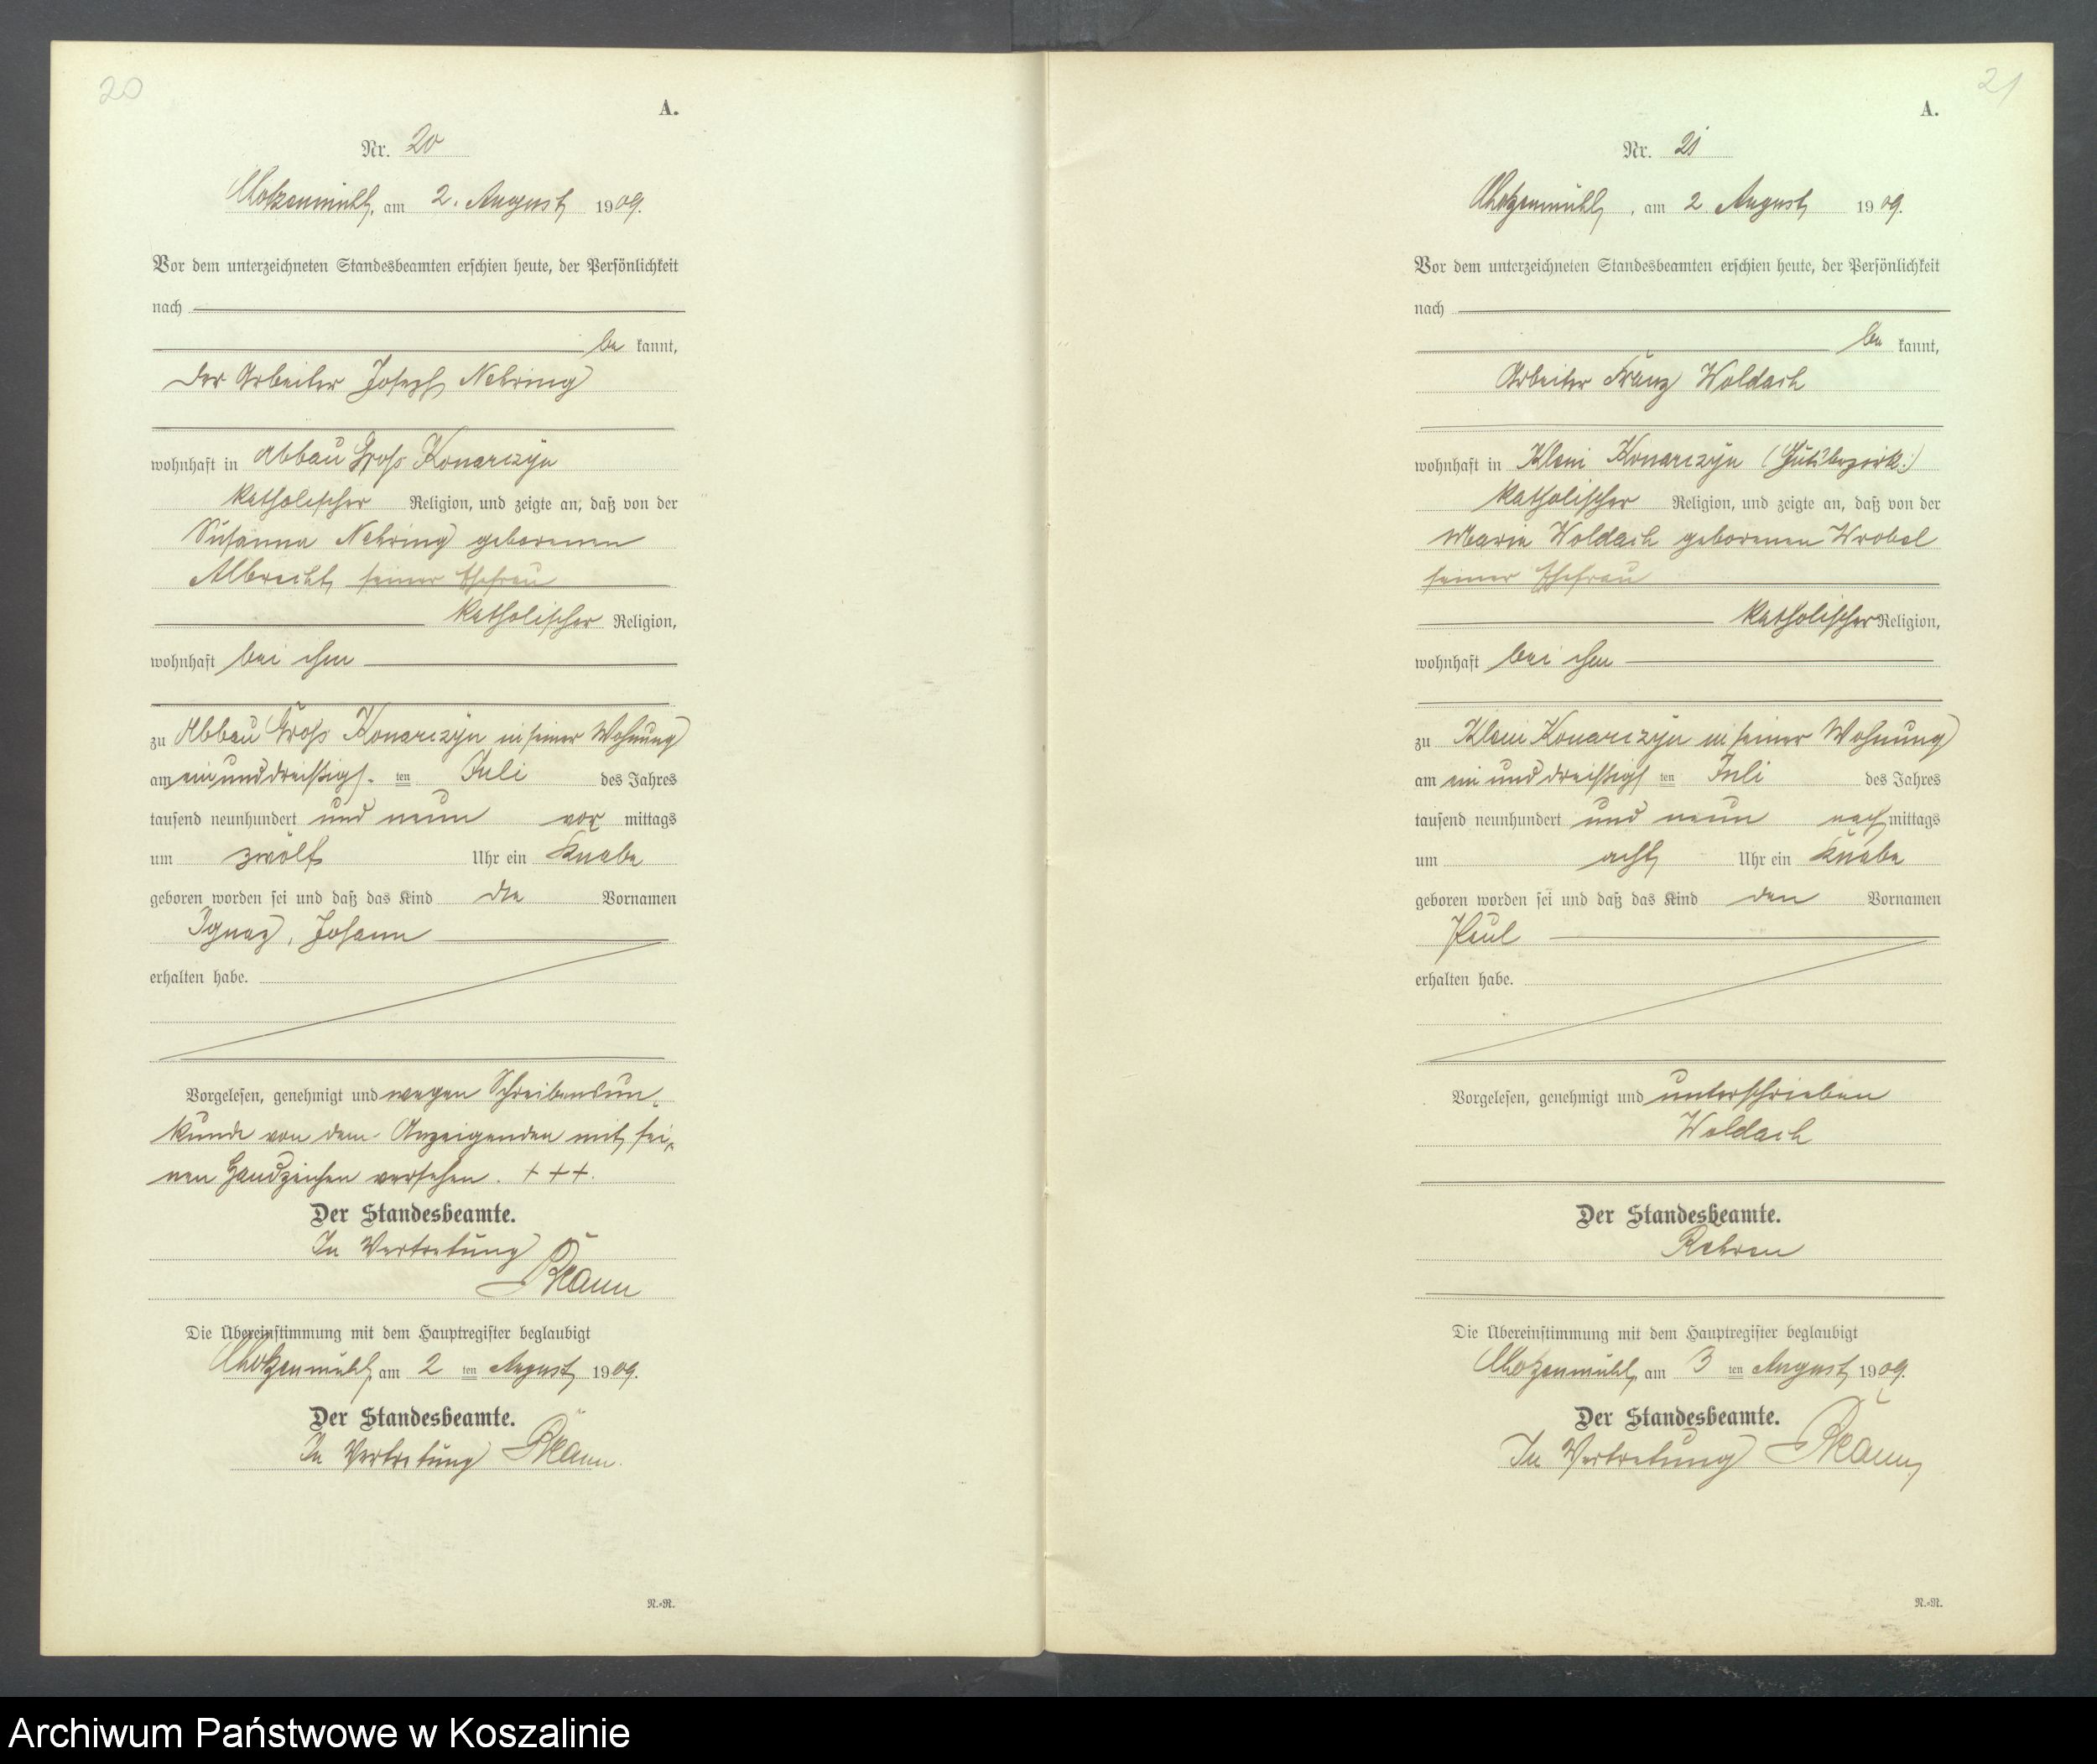 20
A.
Nr. 20
Chotzenmühl, am 2. August 1909.
Vor dem unterzeichneten Standesbeamten erschien heute, der Persönlichkeit
nach
be kannt,
der Arbeiter Joseph Nehring
wohnhaft in Abbau Gross Konarczyn
katholischer Religion, und zeigte an, daß von der
Susanna Nehring geborenen
Albrecht, seiner Ehefrau
katholischer Religion,
wohnhaft bei ihm
zu Abbau Gross Konarczyn in seiner Wohnung
am einunddreißigs. ten Juli des Jahres
tausend neunhundert und neun vor mittags
um zwölf Uhr ein Knabe
geboren worden sei und daß das Kind die Vornamen
Ignaz, Johann
erhalten habe.
Vorgelesen, genehmigt und wegen Schreibensun-
kunde von dem Anzeigenden mit sei-
nen Handzeichen versehen. +++.
Der Standesbeamte.
In Vertretung
Die Übereinstimmung mit dem Hauptregister beglaubigt
Chotzenmühl, am 2 ten August 1909.
Der Standesbeamte.
In Vertretung
N.-R.
21
A.
Nr. 21
Chotzenmühl, am 2. August 1909.
Vor dem unterzeichneten Standesbeamten erschien heute, der Persönlichkeit
nach
be kannt,
Arbeiter Franz Woldach
wohnhaft in Klein Konarczyn (Gutsbezirk.)
katholischer Religion, und zeigte an, daß von der
Maria Woldach geborenen Wrobel
seiner Ehefrau
katholischer Religion,
wohnhaft bei ihm
zu Klein Konarczyn in seiner Wohnung
am einunddreißigs ten Juli des Jahres
tausend neunhundert und neun nach mittags
um acht Uhr ein Knabe
geboren worden sei und daß das Kind den Vornamen
Paul
erhalten habe.
Vorgelesen, genehmigt und unterschrieben
Woldach
Der Standesbeamte.
Rehren
Die Übereinstimmung mit dem Hauptregister beglaubigt
Chotzenmühl, am 3 ten August 1909.
Der Standesbeamte.
In Vertretung
N.-R.
Archiwum Państwowe w Koszalinie